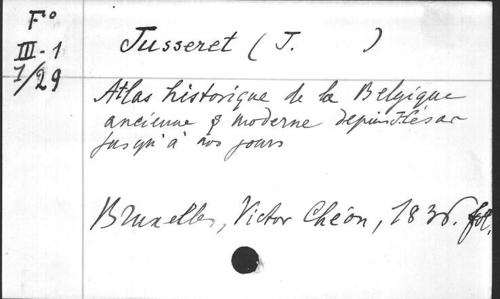 F°
III-1
1/29
Jusseret (J. )
Atlas historique de la Belgique
ancienne & moderne depuis J. César
jusqu'à nos jours
Bruxelles, Victor Chéon, 1836. fol.